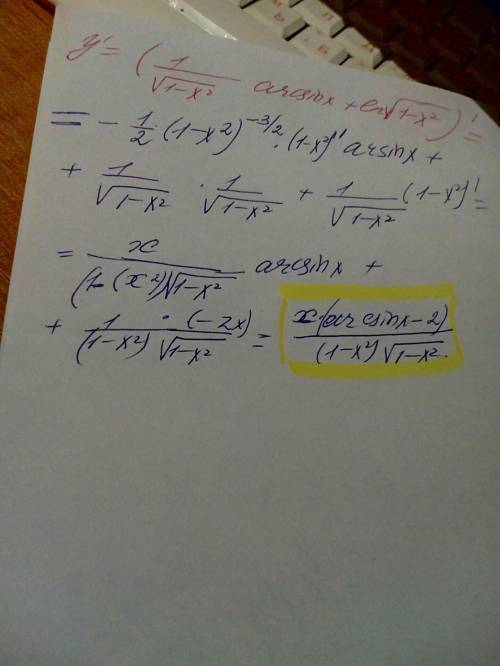 y' = (1/√(1-x²) arcsinx + ln√(1-x²))' =
= -1/2 · (1-x²)^(-3/2) · (1-x²)' arsinx +
+ 1/√(1-x²) · 1/√(1-x²) + 1/√(1-x²) (1-x²)' =
= x/((1-(x²)√(1-x²)) arcsinx +
+ 1 · (-2x)/((1-x²)√(1-x²)) = x(arcsinx-2)/((1-x²)√(1-x²))